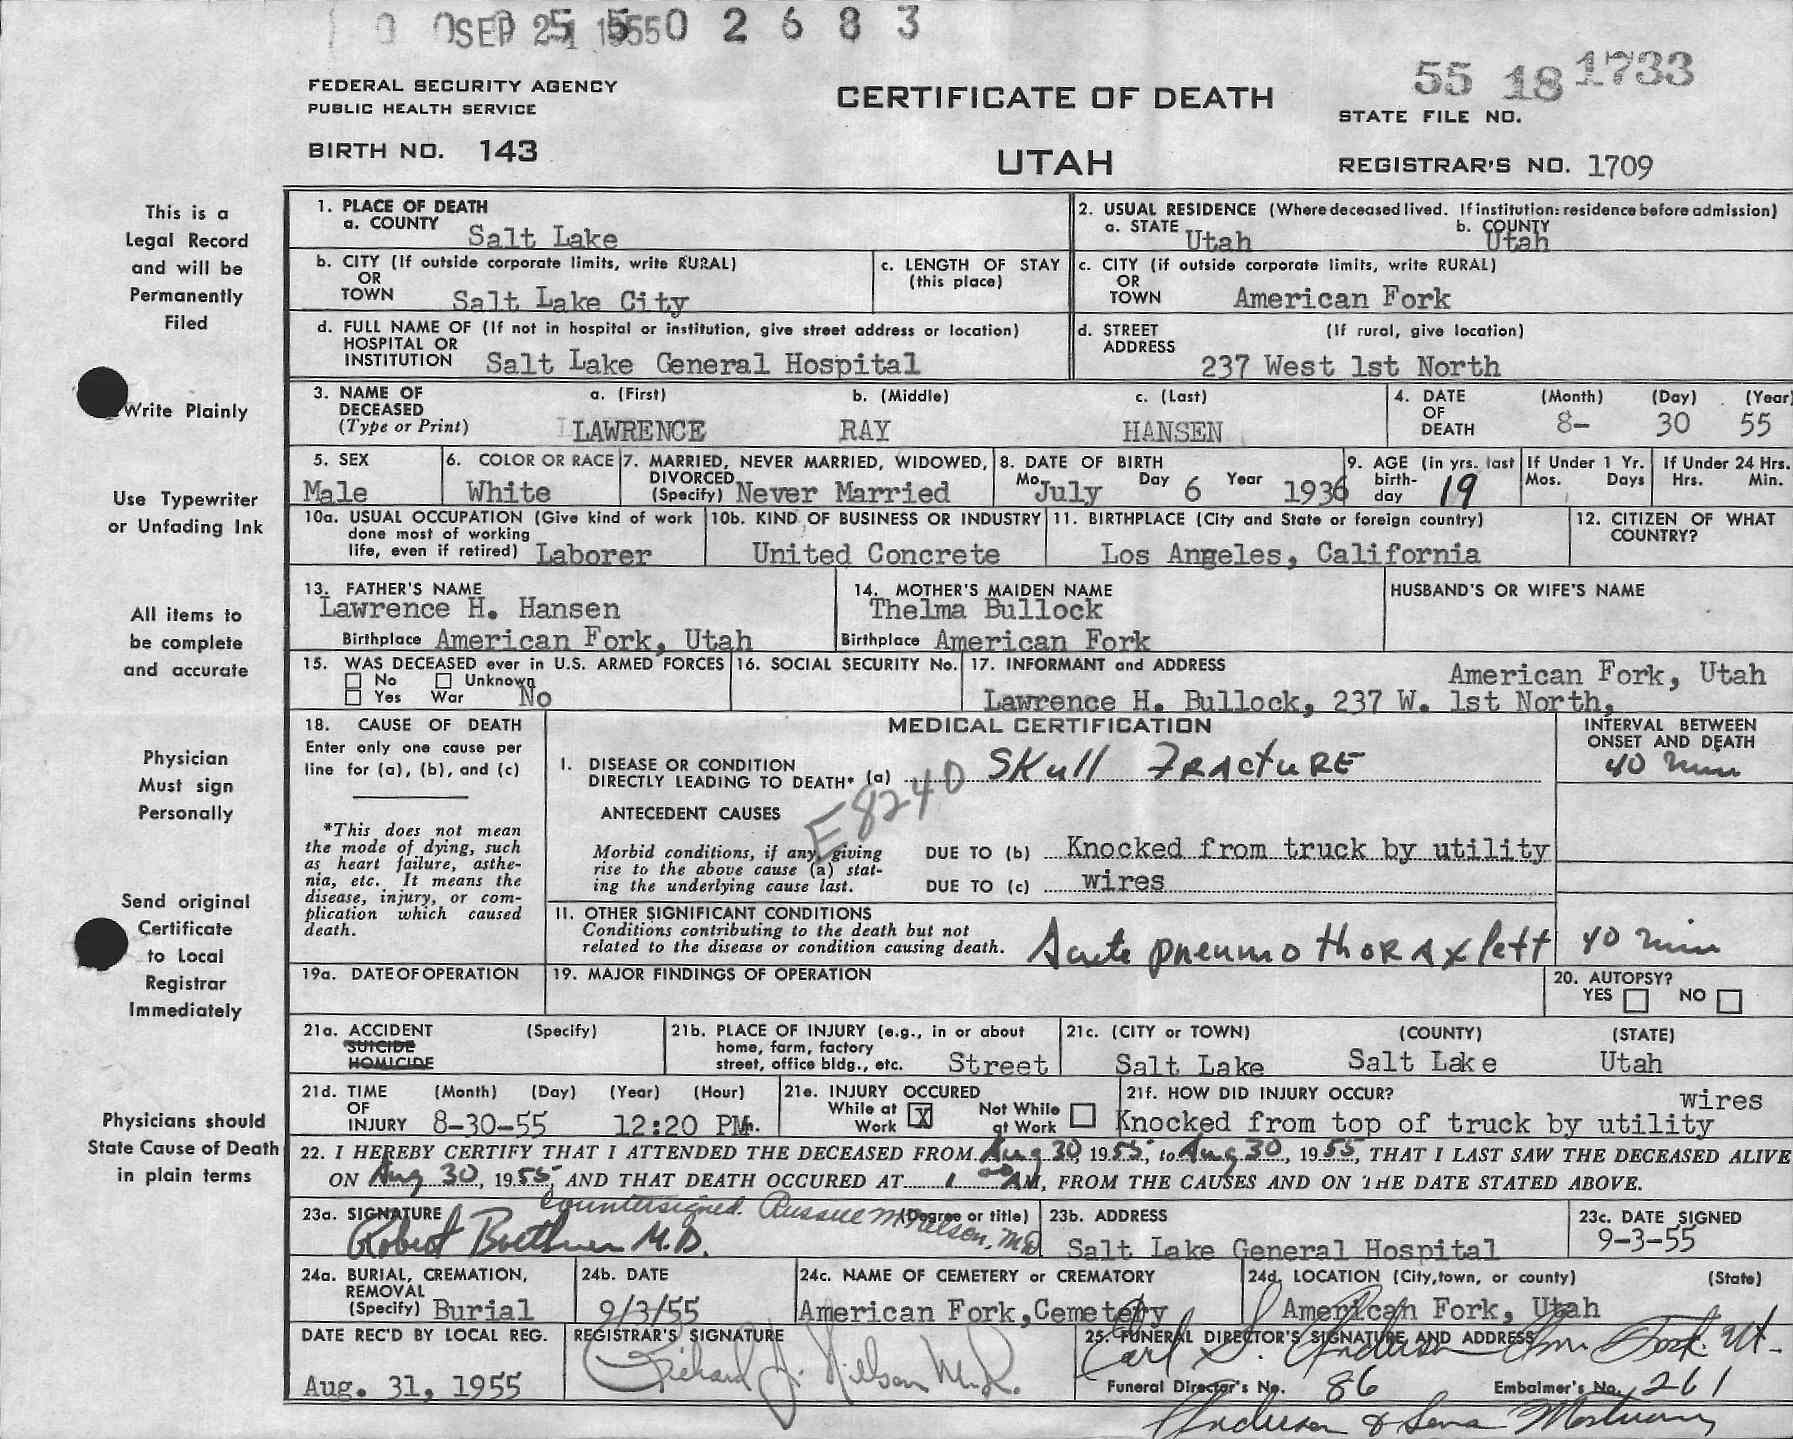 SEP 1955 0 2 6 8 3
55 18 1733
FEDERAL SECURITY AGENCY
PUBLIC HEALTH SERVICE
CERTIFICATE OF DEATH
STATE FILE NO.
BIRTH NO. 143
UTAH
REGISTRAR'S NO. 1709
This is a
Legal Record
and will be
Permanently
Filed
Write Plainly
Use Typewriter
or Unfading Ink
All items to
be complete
and accurate
Physician
Must sign
Personally
Send original
Certificate
to Local
Registrar
Immediately
Physicians should
State Cause of Death
in plain terms
1. PLACE OF DEATH
a. COUNTY Salt Lake
2. USUAL RESIDENCE (Where deceased lived. If institution: residence before admission)
a. STATE Utah b. COUNTY Utah
b. CITY (If outside corporate limits, write RURAL)
OR
TOWN Salt Lake City
c. LENGTH OF STAY
(this place)
c. CITY (if outside corporate limits, write RURAL)
OR
TOWN American Fork
d. FULL NAME OF (If not in hospital or institution, give street address or location)
HOSPITAL OR
INSTITUTION Salt Lake General Hospital
d. STREET (If rural, give location)
ADDRESS
237 West 1st North
3. NAME OF DECEASED (Type or Print)
a. (First) b. (Middle) c. (Last)
LAWRENCE RAY HANSEN
4. DATE OF DEATH (Month) (Day) (Year)
8- 30 55
5. SEX
Male
6. COLOR OR RACE
White
7. MARRIED, NEVER MARRIED, WIDOWED,
DIVORCED
(Specify) Never Married
8. DATE OF BIRTH
Mo July Day 6 Year 1936
9. AGE (in yrs. last
birth-
day 19
If Under 1 Yr.
Mos. Days
If Under 24 Hrs.
Hrs. Min.
10a. USUAL OCCUPATION (Give kind of work
done most of working
life, even if retired) Laborer
10b. KIND OF BUSINESS OR INDUSTRY
United Concrete
11. BIRTHPLACE (City and State or foreign country)
Los Angeles, California
12. CITIZEN OF WHAT
COUNTRY?
13. FATHER'S NAME
Lawrence H. Hansen
Birthplace American Fork, Utah
14. MOTHER'S MAIDEN NAME
Thelma Bullock
Birthplace American Fork
HUSBAND'S OR WIFE'S NAME
15. WAS DECEASED ever in U.S. ARMED FORCES
No Unknown
Yes War No
16. SOCIAL SECURITY No.
17. INFORMANT and ADDRESS
American Fork, Utah
Lawrence H. Bullock, 237 W. 1st North,
18. CAUSE OF DEATH
Enter only one cause per
line for (a), (b), and (c)
*This does not mean
the mode of dying, such
as heart failure, asthe-
nia, etc. It means the
disease, injury, or com-
plication which caused
death.
MEDICAL CERTIFICATION
INTERVAL BETWEEN
ONSET AND DEATH
I. DISEASE OR CONDITION
DIRECTLY LEADING TO DEATH* (a) Skull Fracture
40 min
E8240
ANTECEDENT CAUSES
Morbid conditions, if any, giving
rise to the above cause (a) stat-
ing the underlying cause last.
DUE TO (b) Knocked from truck by utility
DUE TO (c) wires
II. OTHER SIGNIFICANT CONDITIONS
Conditions contributing to the death but not
related to the disease or condition causing death.
Acute pneumothorax left 40 min
19a. DATE OF OPERATION
19. MAJOR FINDINGS OF OPERATION
20. AUTOPSY?
YES NO
21a. ACCIDENT (Specify)
SUICIDE
HOMICIDE
21b. PLACE OF INJURY (e.g., in or about
home, farm, factory
street, office bldg., etc. Street
21c. (CITY or TOWN) (COUNTY) (STATE)
Salt Lake Salt Lake Utah
21d. TIME (Month) (Day) (Year) (Hour)
OF
INJURY 8-30-55 12:20 PM.
21e. INJURY OCCURED
While at Work X Not While at Work
21f. HOW DID INJURY OCCUR?
wires
Knocked from top of truck by utility
22. I HEREBY CERTIFY THAT I ATTENDED THE DECEASED FROM Aug 30, 1955, to Aug 30, 1955, THAT I LAST SAW THE DECEASED ALIVE
ON Aug 30, 1955, AND THAT DEATH OCCURED AT 1 00 M, FROM THE CAUSES AND ON THE DATE STATED ABOVE.
countersigned. Russell M. Nelson, M.D.
23a. SIGNATURE (Degree or title)
Robert M.D.
23b. ADDRESS
Salt Lake General Hospital
23c. DATE SIGNED
9-3-55
24a. BURIAL, CREMATION,
REMOVAL
(Specify) Burial
24b. DATE
9/3/55
24c. NAME OF CEMETERY or CREMATORY
American Fork, Cemetery
24d. LOCATION (City, town, or county) (State)
American Fork, Utah
DATE REC'D BY LOCAL REG.
Aug. 31, 1955
REGISTRAR'S SIGNATURE
Richard J. Nielson M.D.
25. FUNERAL DIRECTOR'S SIGNATURE AND ADDRESS
Carl S. Anderson Am. Fork. Ut.
Funeral Director's No. 86 Embalmer's No. 261
Anderson & Sons Mortuary